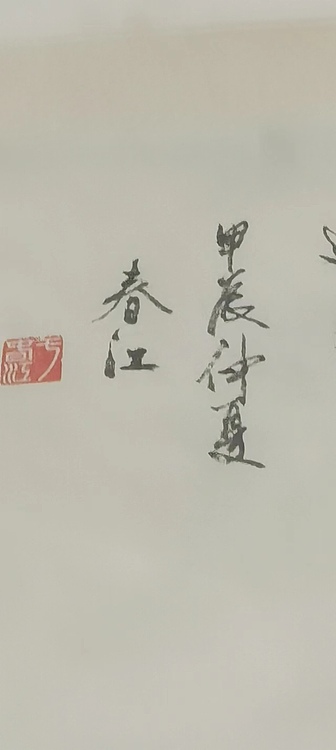 甲辰仲夏
春江